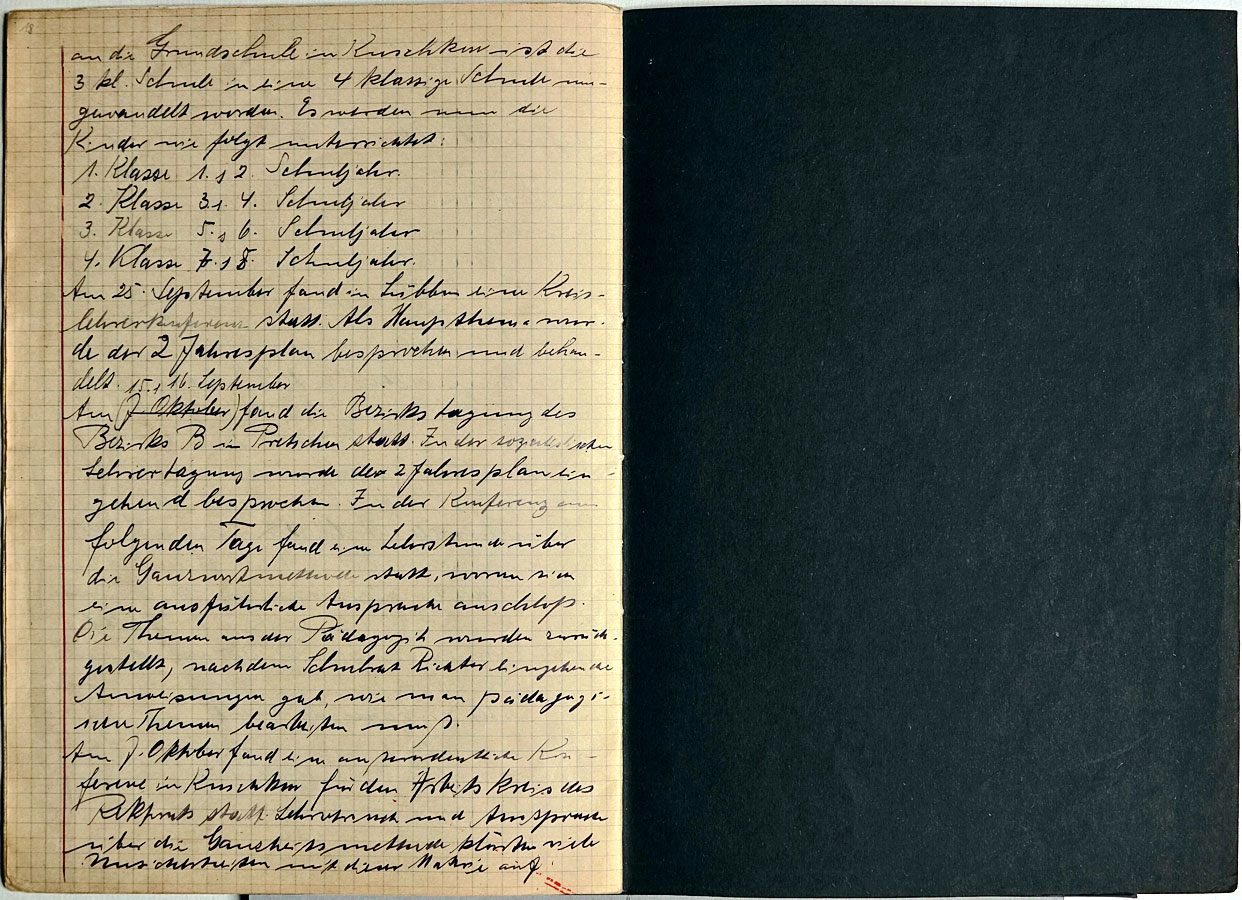 18
an die Grundschule in Kuschkow ist die
3 kl. Schule in eine 4 klassige Schule um-
gewandelt worden. Es werden nun die
Kinder wie folgt unterrichtet:
1. Klasse 1. s 2. Schuljahr.
2. Klasse 3. s. 4. Schuljahr
3. Klasse 5. s 6. Schuljahr
4. Klasse 7. s 8. Schuljahr.
Am 25. September fand in Lübben eine Kreis-
lehrerkonferenz statt. Als Hauptthema wur-
de der 2 Jahresplan besprochen und behan-
delt. 15. s 16. September
Am (7. Oktober) fand die Bezirkstagung des
Bezirks B in Pretschen statt. In der sozialistischen
Lehrertagung wurde der 2 Jahresplan ein-
gehend besprochen. In der Konferenz am
folgenden Tage fand eine Lehrstunde über
die Ganzwortmethode statt, woran sich
eine ausführliche Aussprache anschloß.
Die Themen aus der Pädagogik wurden zurück-
gestellt, nachdem Schulrat Richter eingehende
Anweisungen gab, wie man pädagogi-
schen Themen bearbeiten muß.
Am 7. Oktober fand eine außerordentliche Kon-
ferenz in Kuschkow für den Arbeitskreis des
Rektorats statt. Lehrversuch und Aussprache
über die Ganzheitsmethode klärten viele
Unsicherheiten mit dieser Materie auf